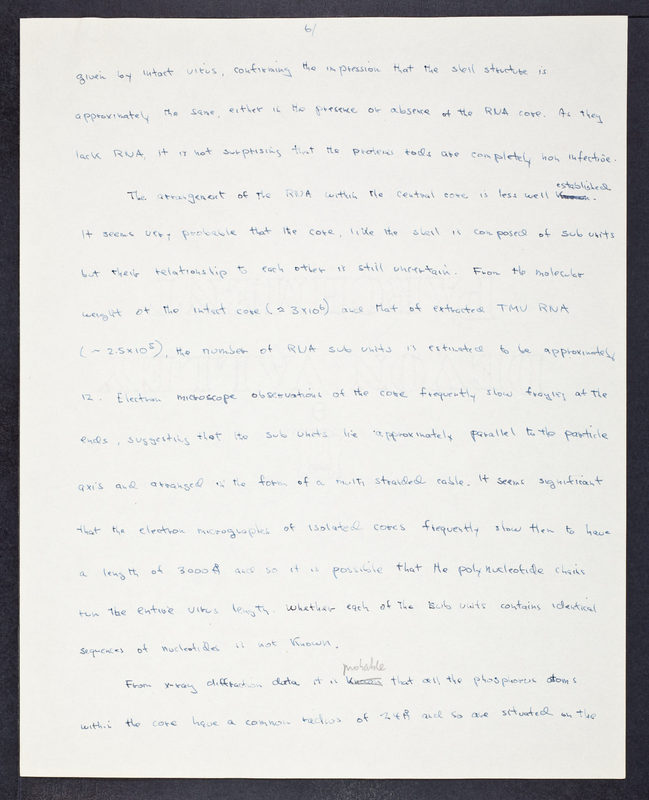 6/
given by intact virus, confirming the impression that the shell structure is
approximately the same, either in the presence or absence of the RNA core. As they
lack RNA, it is not surprising that the proteins rods are completely non infective.
The arrangement of the RNA within the central core is less well known established.
It seems very probable that the core, like the shell is composed of sub units
but their relationship to each other is still uncertain. From the molecular
weight of the intact core (≈ 3x10⁶) and that of extracted TMV RNA
(~ 2.5x10⁵), the number of RNA sub units is estimated to be approximately
12. Electron microscope observations of the core frequently show fraying at the
ends, suggesting that the sub units lie approximately parallel to the particle
axis and arranged in the form of a multi stranded cable. It seems significant
that the electron micrographs of isolated cores frequently show them to have
a length of 3000Å and so it is possible that the polynucleotide chains
run the entire virus length. Whether each of the sub units contains identical
sequences of nucleotides is not known.
From x-ray diffraction data it is known probable that all the phosphorus atoms
within the core have a common radius of 24Å and so are situated on the